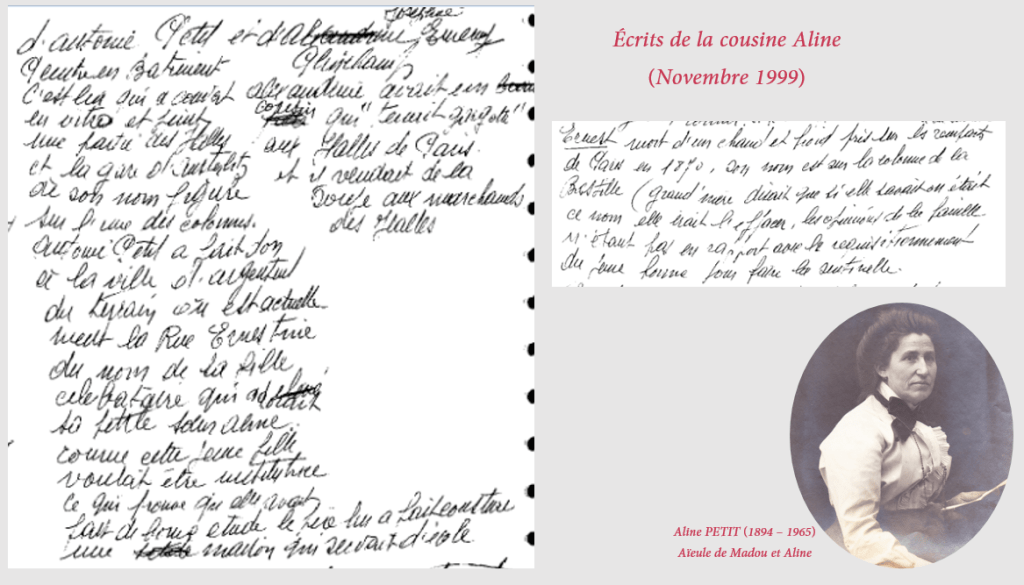 Joséphine
d'antoine Petit et d'A Ernest
Peintre en Batiment Glinchamp
c'est lui qui a couvert alexandrine avait un
en vitro et peint cousin qui "tenait gargote"
une partie des Halles aux Halles de Paris.
et la gare d'austerlitz et il vendait de la
où son nom figure Soupe aux marchands
sur l'une des colonnes. des Halles
antoine Petit a fait don
a la ville d'argenteuil
du terrain où est actuelle-
ment la Rue Ernestine
du nom de la fille
celebataire qui
sa petite soeur aline.
comme cette jeune fille
voulait être institutrice
ce qui prouve que elle avait
fait de bonne etude le Père lui a fait construire
une maison qui servait d'école
Écrits de la cousine Aline
(Novembre 1999)
Ernest mort d'un chaud et froid pris sur les remparts
de Paris en 1870, son nom est sur la colonne de la
Bastille (grand'mere disait que si elle savait où était
ce nom elle irait l'effacer, les opinions de la famille
n'étant pas en rapport avec le requisitionnement
du jeune homme pour faire la sentinelle.
Aline PETIT (1894 – 1965)
Aïeule de Madou et Aline